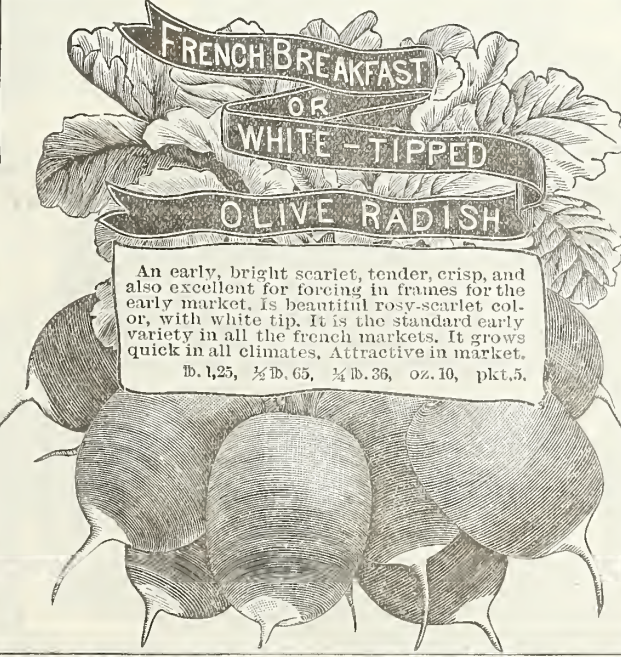 FRENCH BREAKFAST
OR
WHITE-TIPPED
OLIVE RADISH
An early, bright scarlet, tender, crisp, and
also excellent for forcing in frames for the
early market. Is beautiful rosy-scarlet col-
or, with white tip. It is the standard early
variety in all the french markets. It grows
quick in all climates, Attractive in market.
lb. 1,25, ½ lb. 65, ¼ lb. 36, oz. 10, pkt.5.